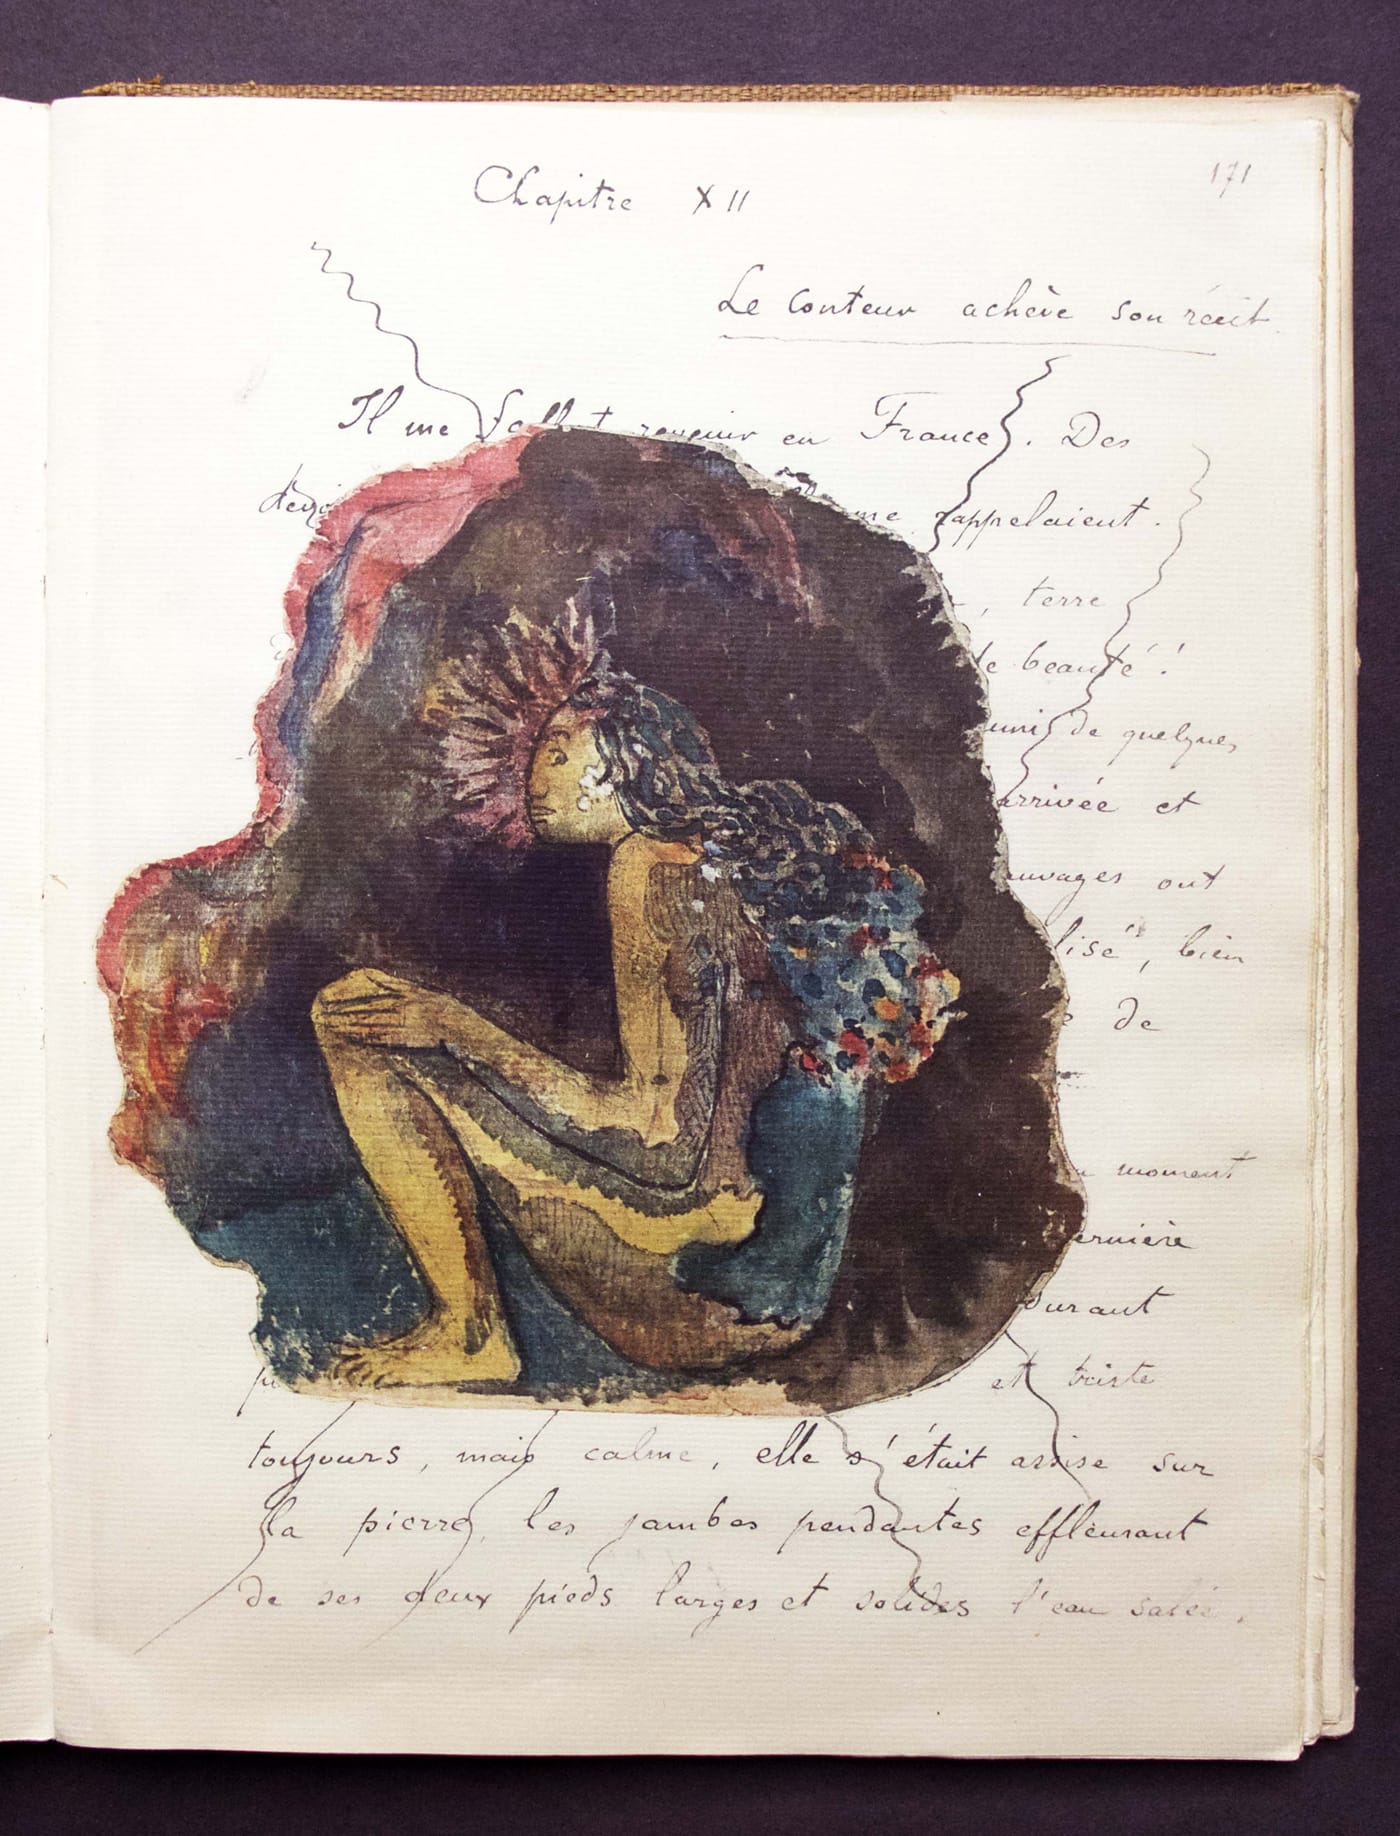 171
Chapitre XII
Le conteur achève son récit
Il me fallut revenir en France. Des
me rappelaient.
, terre
de beauté !
muni de quelques
arrivée et
auvages ont
lisé, bien
de
moment
ernière
durant
et triste
toujours, mais calme, elle s'était assise sur
la pierre, les jambes pendantes effleurant
de ses deux pieds larges et solides l'eau salée.